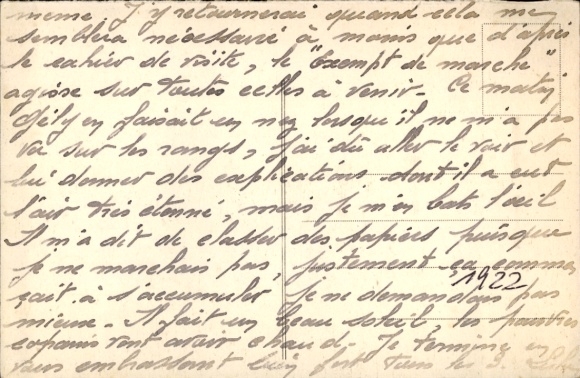 même. J'y retournerai quand cela me
semblera nécessaire à moins que d'après
le cahier de visite, le "Exempt de marche"
agisse sur toutes celles à venir. Ce matin
Gély en faisait un nez lorsqu'il ne m'a pas
vu sur les rangs, j'ai dû aller le voir et
lui donner des explications dont il a eut
l'air très étonné, mais je m'en bats l'œil
Il m'a dit de classer des papiers puisque
je ne marchais pas, justement ça commen
çait à s'accumuler je ne demandais pas
1922
mieux. Il fait un beau soleil, les pauvres
copains vont avoir chaud. Je termine en
vous embrassant bien fort tous les 3.